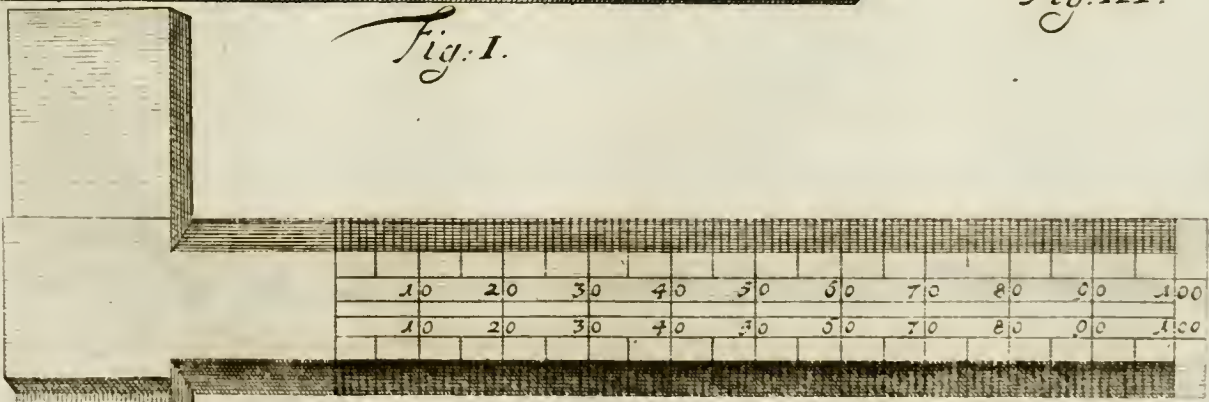 Fig. I.
Fig. III.
10 20 30 40 50 60 70 80 90 100
10 20 30 40 50 60 70 80 90 100